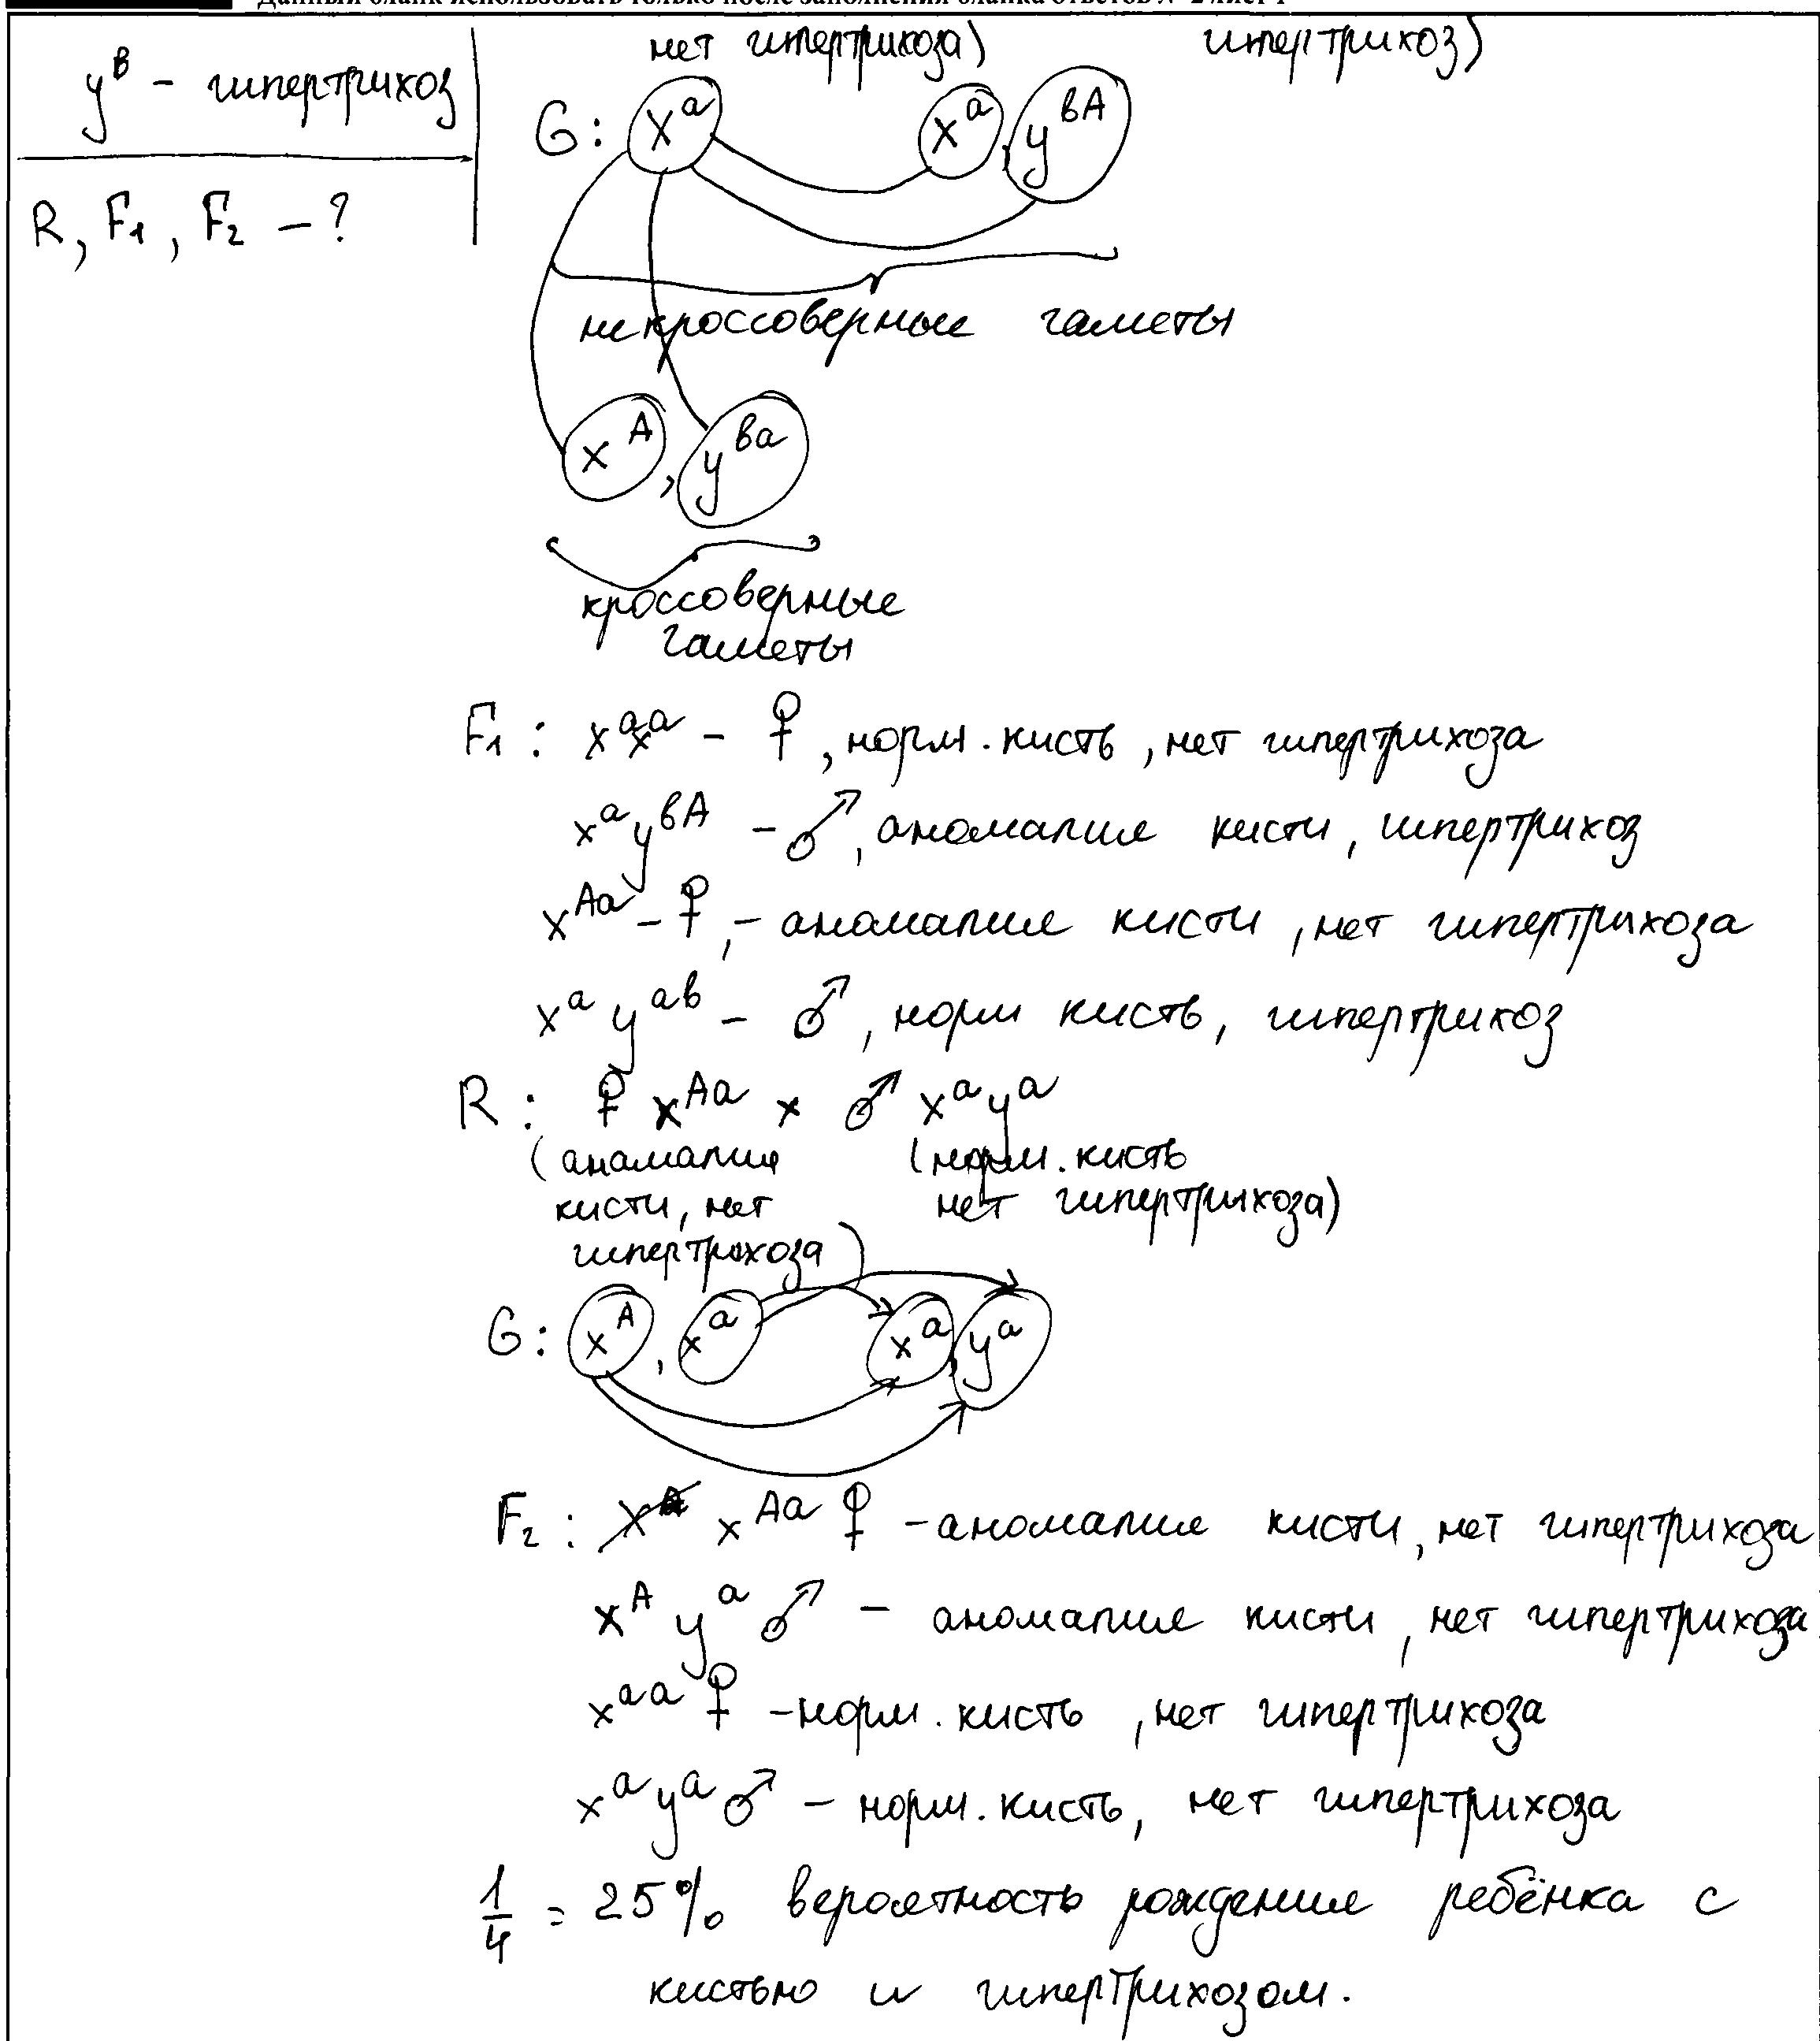 Данный бланк использовать только после заполнения бланка ответов № 2 лист 1
y^в - гипертрихоз
R, F₁, F₂ - ?
нет гипертрихоза) гипертрихоз)
G: x^a x^a, y^вA
некроссоверные гаметы
x^A, y^вa
кроссоверные
гаметы
F₁: x^a x^a - ♀, норм. кисть, нет гипертрихоза
x^a y^вA - ♂, аномалия кисти, гипертрихоз
x^Aa - ♀, - аномалия кисти, нет гипертрихоза
x^a y^aв - ♂, норм кисть, гипертрихоз
R: ♀ x^Aa × ♂ x^a y^a
(аномалия (норм. кисть
кисти, нет нет гипертрихоза)
гипертрихоза)
G: x^A, x^a x^a, y^a
F₂: x^Aa ♀ - аномалия кисти, нет гипертрихоза
x^A y^a ♂ - аномалия кисти, нет гипертрихоза
x^aa ♀ - норм. кисть, нет гипертрихоза
x^a y^a ♂ - норм. кисть, нет гипертрихоза
1/4 = 25% вероятность рождения ребёнка с
кистью и гипертрихозом.